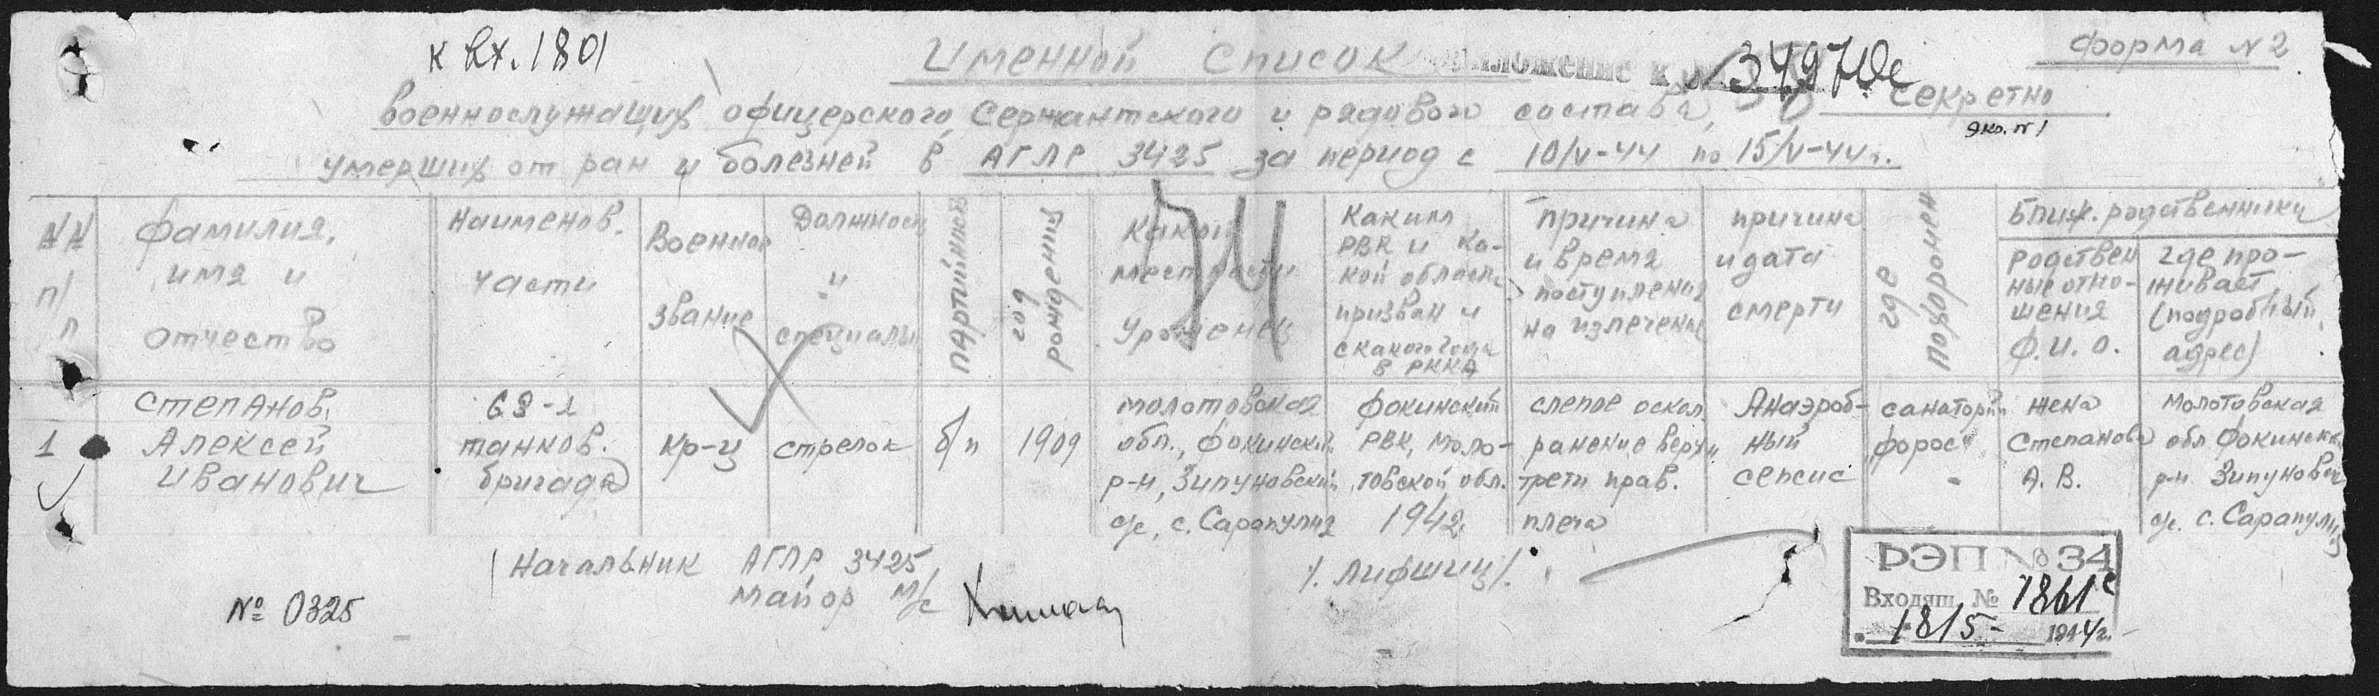 к вх. 1801
Именной список
Приложение к № 34970с
Форма №2
Секретно
Экз. №1
военнослужащих офицерского, сержантского и рядового состава,
умерших от ран и болезней в АГЛР 3425 за период с 10/V-44 по 15/V-44г.
№№ п/п
Фамилия, имя и отчество
Наименов. части
Военное звание
Должность и специальн
Партийность
год рождения
Какой местности уроженец
74
Каким РВК и какой области призван и с какого года в РККА
Причина и время поступления на излечение
причина и дата смерти
где похоронен
Ближ. родственники
родственные отношения Ф.И.О.
где проживает (подробный адрес)
1
Степанов, Алексей Иванович
танков. бригада
кр-ц
стрелок
б/п
1909
Молотовская обл., Фокинский р-н, Зипуновский с/с, с. Сарапулка
Фокинский РВК, Молотовской обл. 1942
слепое оскол. ранение верхн трети прав. плеча
Анаэробный сепсис
санаторий "форос"
жена Степанова А.В.
Молотовская обл Фокинск. р-н Зипуновск с/с. с. Сарапулка
Начальник АГЛР 3425
майор м/с
/. Лифшиц/.
№ 0325
РЭП № 34
Входящ. № 1861с
18/5- 1944г.